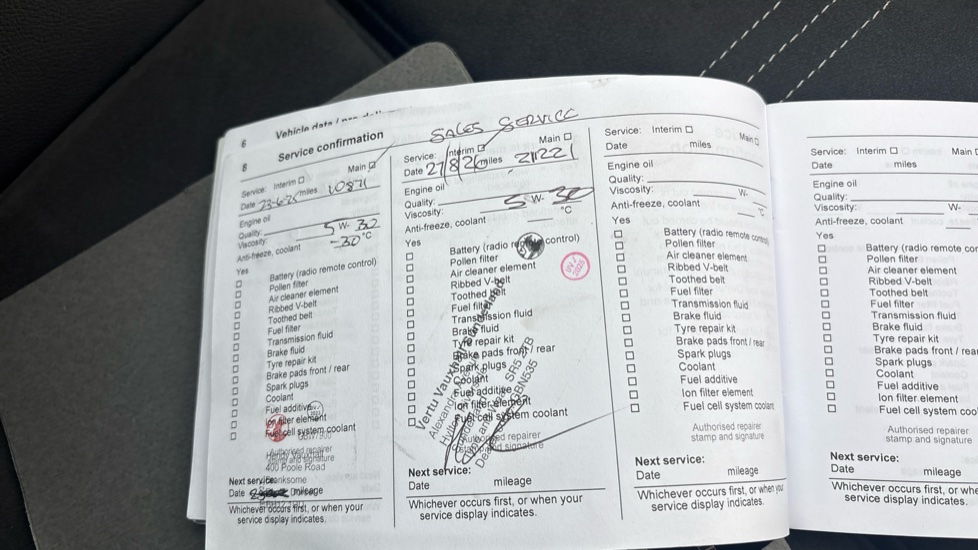 6
Vehicle data /
8
Service confirmation
Service: Interim □ Main ☑
Date 23-6-25 miles 10871
Engine oil
Quality:
Viscosity: 5 W- 30
Anti-freeze, coolant -30 °C
Yes
□ Battery (radio remote control)
□ Pollen filter
□ Air cleaner element
□ Ribbed V-belt
□ Toothed belt
□ Fuel filter
□ Transmission fluid
□ Brake fluid
□ Tyre repair kit
□ Brake pads front / rear
□ Spark plugs
□ Coolant
□ Fuel additive
□ Ion filter element
□ Fuel cell system coolant
Authorised repairer
stamp and signature
400 Poole Road
Next service:
Date mileage
Whichever occurs first, or when your
service display indicates.
SALES SERVICE
Service: Interim □ Main □
Date 27/8/26 miles 21221
Engine oil
Quality:
Viscosity: 5 W- 30
Anti-freeze, coolant °C
Yes
□ Battery (radio remote control)
□ Pollen filter
□ Air cleaner element
□ Ribbed V-belt
□ Toothed belt
□ Fuel filter
□ Transmission fluid
□ Brake fluid
□ Tyre repair kit
□ Brake pads front / rear
□ Spark plugs
□ Coolant
□ Fuel additive
□ Ion filter element
□ Fuel cell system coolant
Authorised repairer
stamp and signature
Vertu Vauxhall
SR5
Next service:
Date mileage
Whichever occurs first, or when your
service display indicates.
Service: Interim □ Main □
Date miles
Engine oil
Quality:
Viscosity: W-
Anti-freeze, coolant °C
Yes
□ Battery (radio remote control)
□ Pollen filter
□ Air cleaner element
□ Ribbed V-belt
□ Toothed belt
□ Fuel filter
□ Transmission fluid
□ Brake fluid
□ Tyre repair kit
□ Brake pads front / rear
□ Spark plugs
□ Coolant
□ Fuel additive
□ Ion filter element
□ Fuel cell system coolant
Authorised repairer
stamp and signature
Next service:
Date mileage
Whichever occurs first, or when you
service display indicates.
Service: Interim □ Main □
Date miles
Engine oil
Quality:
Viscosity: W-
Anti-freeze, coolant
Yes
□ Battery (radio remote cor
□ Pollen filter
□ Air cleaner element
□ Ribbed V-belt
□ Toothed belt
□ Fuel filter
□ Transmission fluid
□ Brake fluid
□ Tyre repair kit
□ Brake pads front / rear
□ Spark plugs
□ Coolant
□ Fuel additive
□ Ion filter element
□ Fuel cell system coo
Authorised repairer
stamp and signature
Next service:
Date mileage
Whichever occurs first, or whe
service display indicates.